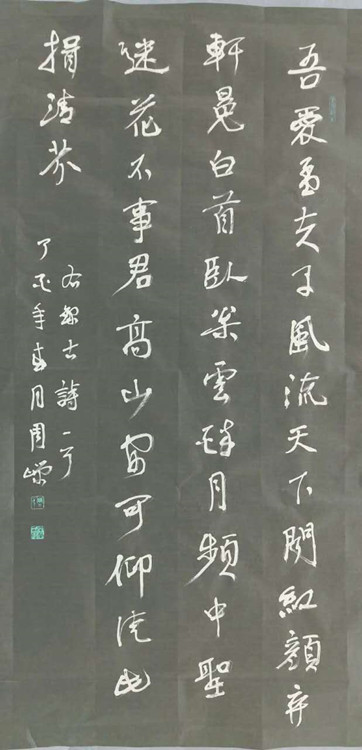 吾愛孟夫子風流天下聞紅顏弃
軒冕白首臥松雲醉月頻中聖
迷花不事君高山安可仰徒此
揖清芬
右錄古詩一首
年春月周